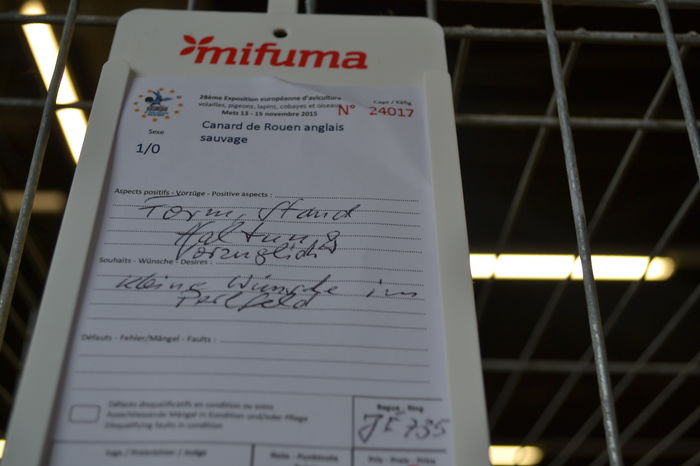 mifuma
28ème Exposition européenne d'aviculture
volailles, pigeons, lapins, cobayes et oiseaux
Metz 13 - 15 novembre 2015
Cage / Käfig
N° 24017
Sexe
1/0
Canard de Rouen anglais
sauvage
Aspects positifs - Vorzüge - Positive aspects :
Form, Stand
Haltung
Vorzüglich
Souhaits - Wünsche - Desires :
kleine Wünsche im
Defauts - Fehler/Mängel - Faults :
Défauts disqualificatifs en condition ou soins
Ausschliessende Mängel in Kondition und/oder Pflege
Disqualifying faults in condition
Bague - Ring
735
Juge / Preisrichter / Judge
Note - Punktzahl
Prix - Preis - Prize